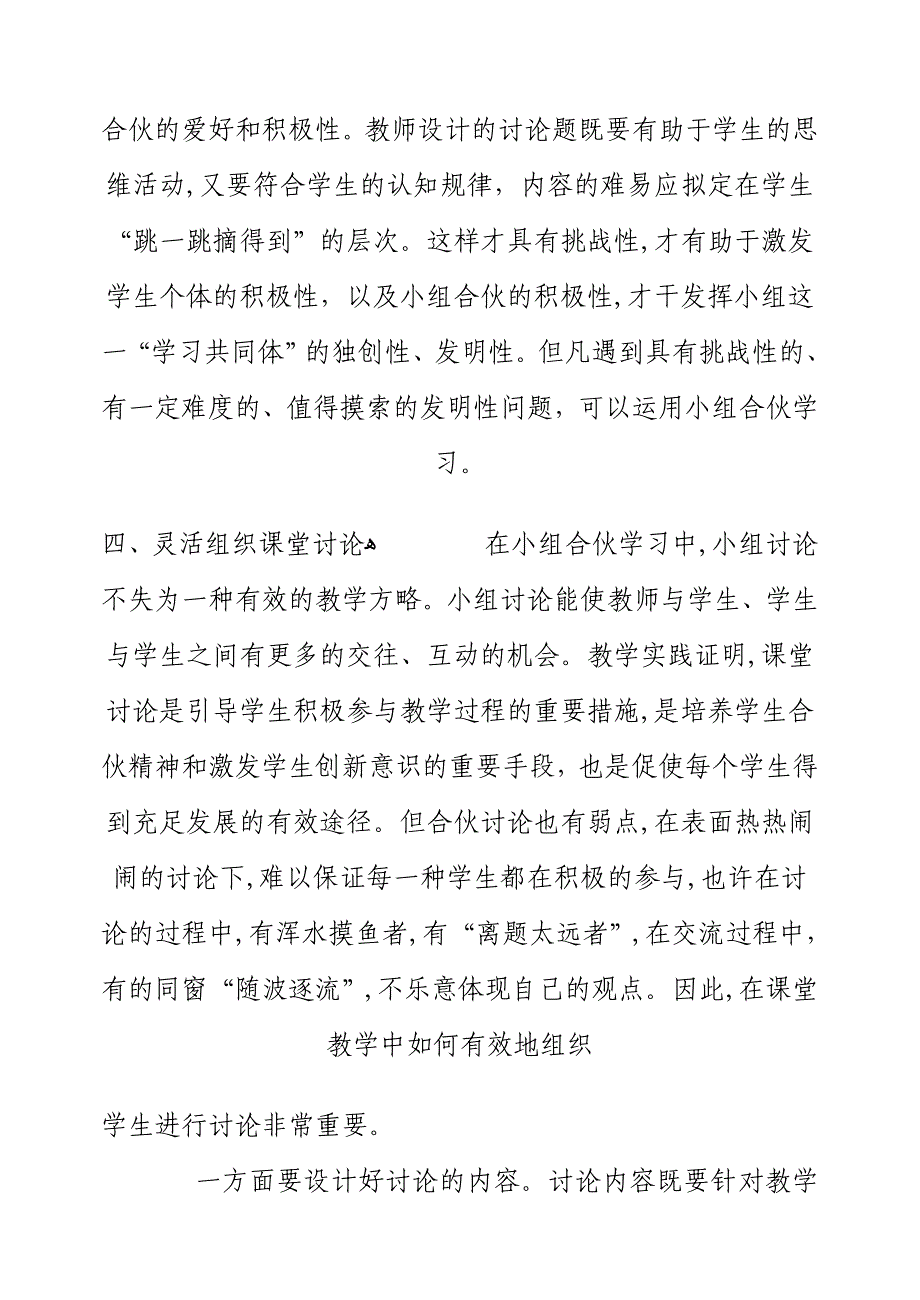 合伙的爱好和积极性。教师设计的讨论题既要有助于学生的思
维活动,又要符合学生的认知规律，内容的难易应拟定在学生
“跳一跳摘得到”的层次。这样才具有挑战性,才有助于激发
学生个体的积极性，以及小组合伙的积极性,才干发挥小组这
一“学习共同体”的独创性、发明性。但凡遇到具有挑战性的、
有一定难度的、值得摸索的发明性问题，可以运用小组合伙学
习。
四、灵活组织课堂讨论ﻫ 在小组合伙学习中,小组讨论
不失为一种有效的教学方略。小组讨论能使教师与学生、学生
与学生之间有更多的交往、互动的机会。教学实践证明,课堂
讨论是引导学生积极参与教学过程的重要措施,是培养学生合
伙精神和激发学生创新意识的重要手段，也是促使每个学生得
到充足发展的有效途径。但合伙讨论也有弱点,在表面热热闹
闹的讨论下,难以保证每一种学生都在积极的参与,也许在讨
论的过程中,有浑水摸鱼者,有“离题太远者”,在交流过程中，
有的同窗“随波逐流”,不乐意体现自己的观点。因此,在课堂
教学中如何有效地组织
学生进行讨论非常重要。
一方面要设计好讨论的内容。讨论内容既要针对教学